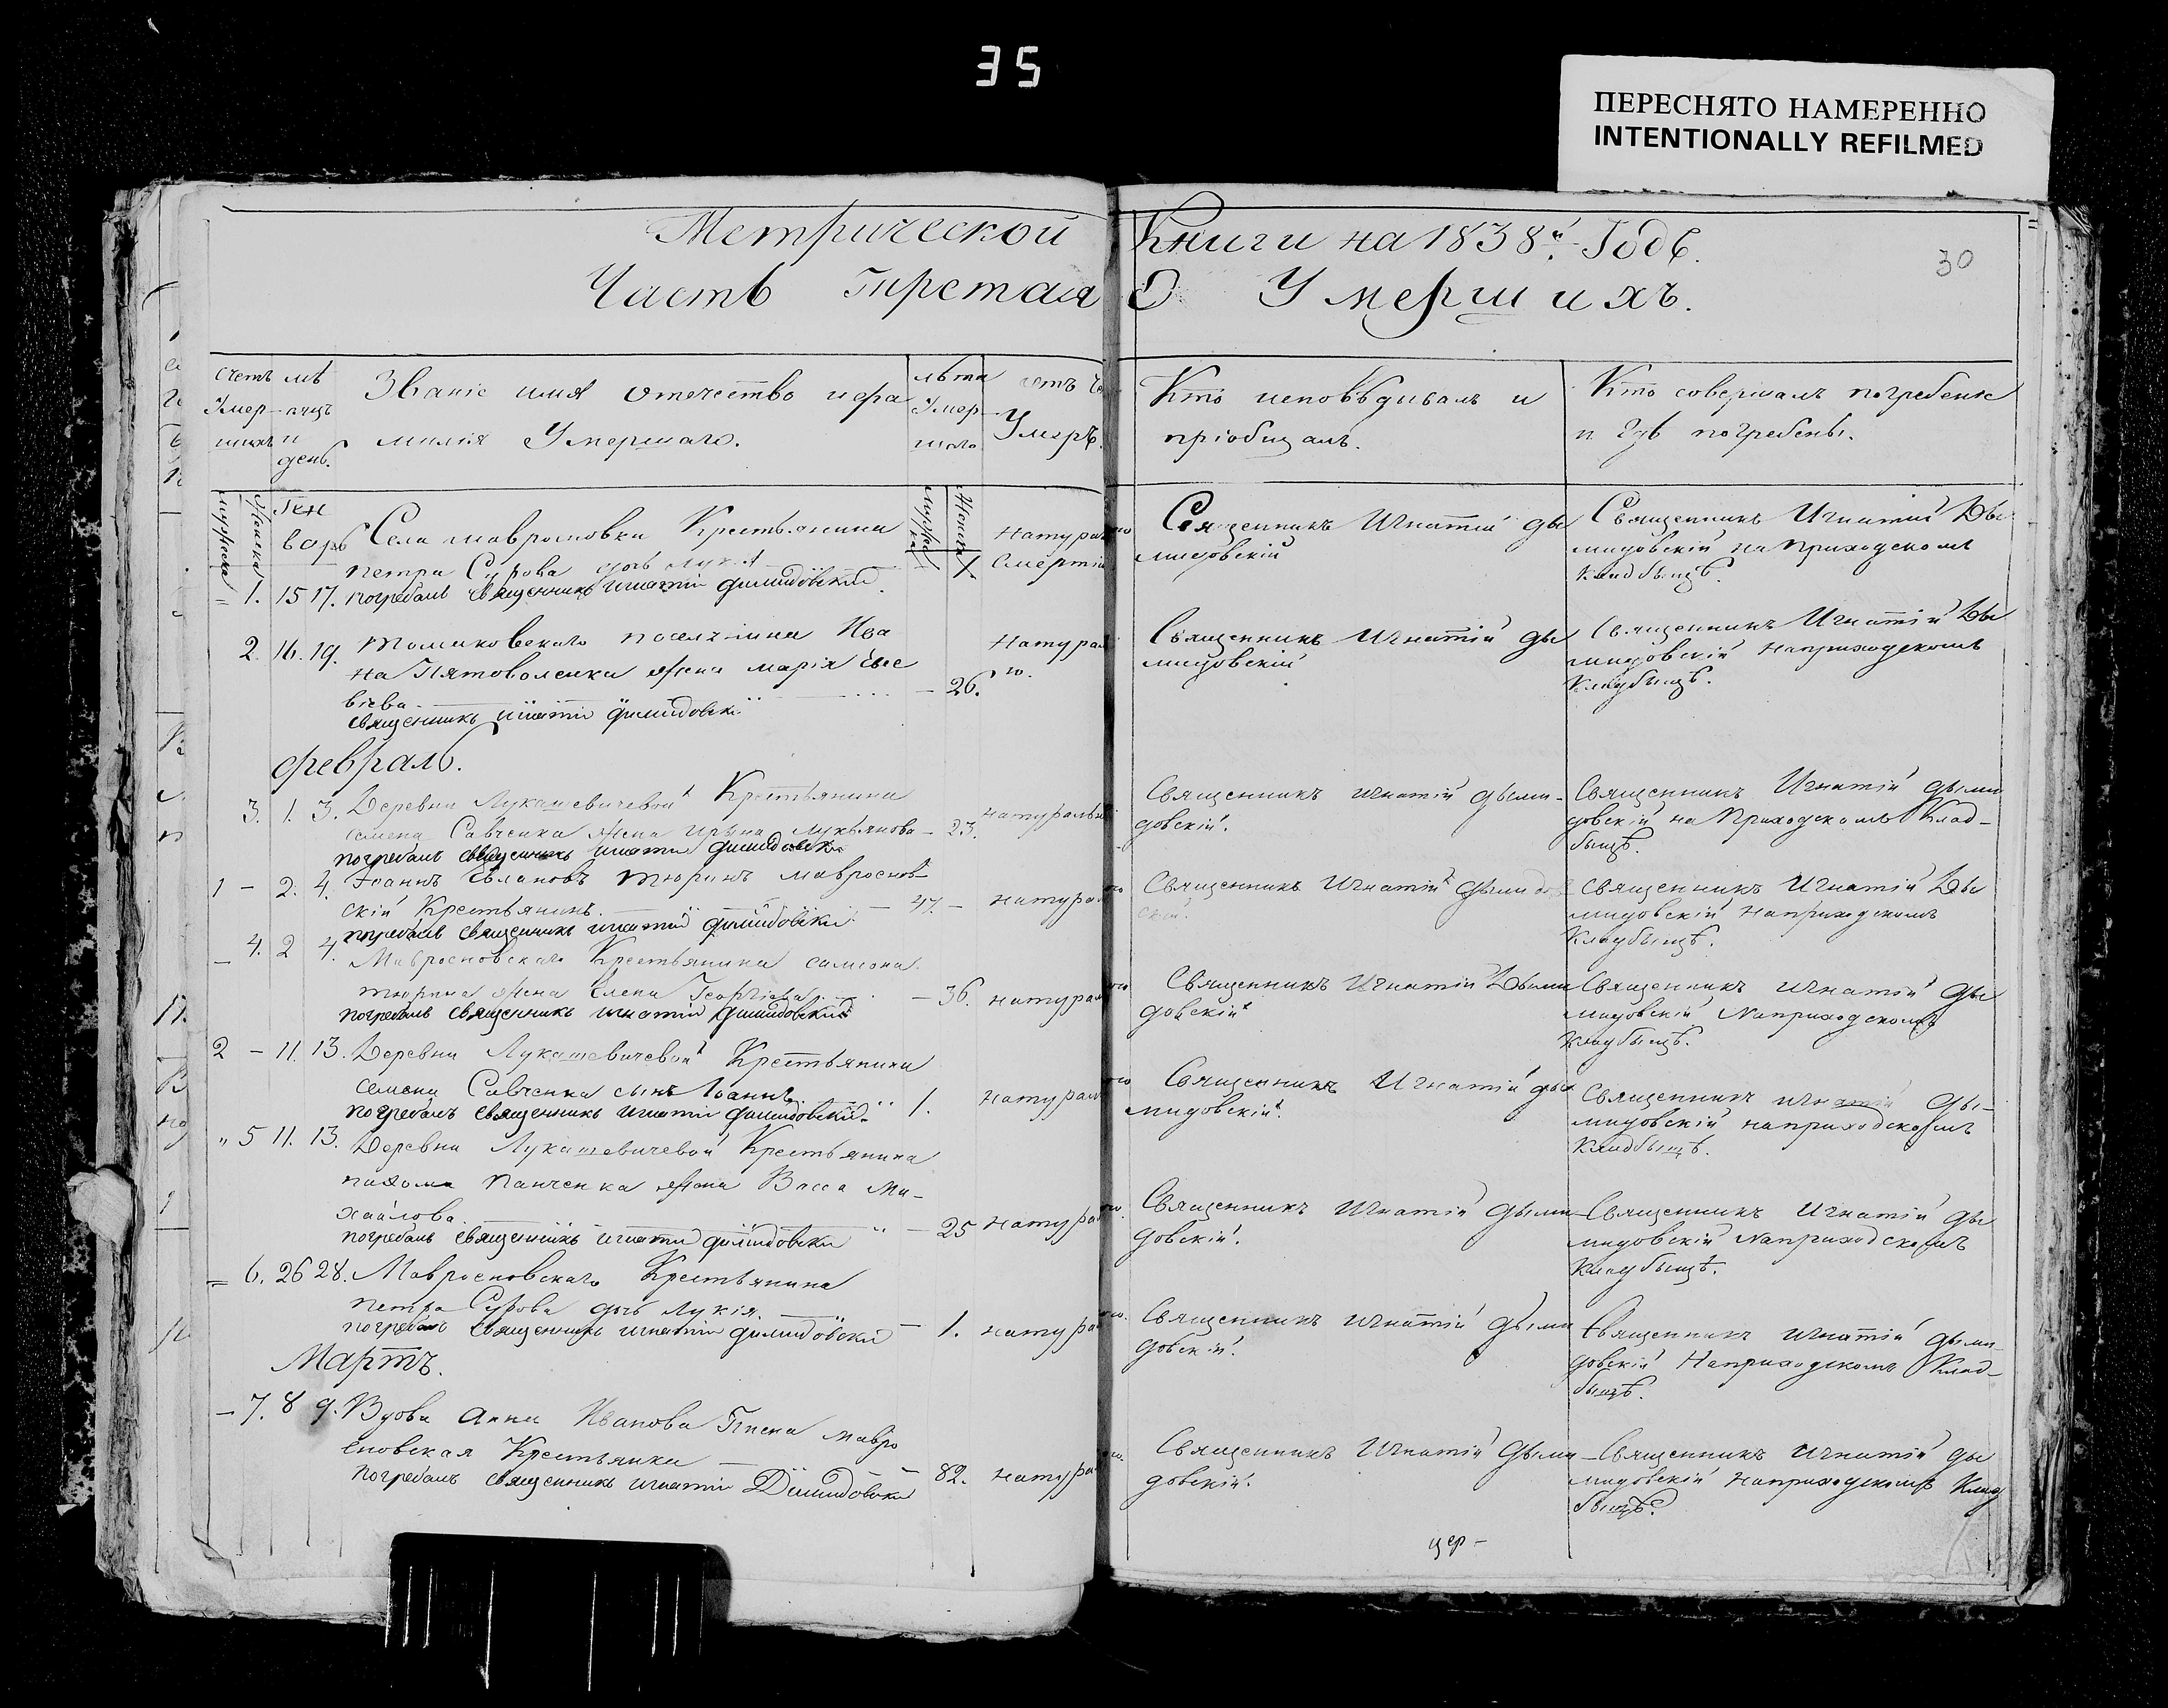 35
ПЕРЕСНЯТО НАМЕРЕННО
INTENTIONALLY REFILMED
Метрической Книги на 1838й Годъ.
30
Часть Третая О Умершихъ.
счетъ
Умер-
шихъ
мѣ
сяцъ
и
день.
Званіе имя отечество и фа
милія Умершаго.
лѣта
Умер-
шаго
отъ че
Умеръ.
Кто исповѣдывалъ и
пріобщалъ.
Кто совершалъ погребеніе
и гдѣ погребены.
мужеска
женска
Ген
варь
Села мавроновки Крестьянина
петра Сурова дочь
= 1. 15 17. погребалъ священникъ игнатій димидовскій
1.
Натурал ною
Смертію
Священникъ Игнатій Ды
мидовскій
Священникъ Игнатій Ды
мидовскій на Приходскомъ
Кладбыщѣ.
2. 16. 19. Томаковскаго поселянина Ива
на Пятоволенка жена марія Евсе
віева. — 26.
священникъ игнатій димидовскі
Натурал
ю.
Священникъ Игнатій Ды
мидовскій
Священникъ Игнатій Ды
мидовскій наприходскомъ
Кладбыщѣ.
февраль.
3. 1. 3. Деревни Лукашевичевой Крестьянина
семена Савченка жена Ирына Лукьянова — 23.
погребалъ священникъ игнатій димидовскі
натуральн
Священникъ игнатій дыми-
довскій.
Священникъ Игнатій дыми
довскій на Приходскомъ Клад-
быщѣ.
1 — 2. 4. Іоаннъ Тюринъ мавроенов
скій Крестьянинъ. — 47. —
погребалъ священникъ игнатій димидовскій
натурал ною
Священникъ Игнатій дымидов
скій.
священникъ Игнатій Ды
мидовскій наприходскомъ
Кладбыщѣ.
— 4. 2 4. Мавроеновскаго Крестьянина самсона
тюрина жена Елена Георгіева — 36.
погребалъ священникъ игнатій димидовскій
натурал ною
Священникъ Игнатій Дыми
довскій
Священникъ игнатій Ды
мидовскій Наприходскомъ
Кладбыщѣ.
2 — 11. 13. Деревни Лукашевичевой Крестьянина
семена Савченка сынъ Іоаннъ. 1.
погребалъ священникъ игнатій димидовскій
натурал ною
Священникъ Игнатій ды
мидовскій.
Священникъ игнатій ды-
мидовскій наприходскомъ
Кладбыщѣ.
„ 5 11. 13. Деревни Лукашевичевой Крестьянина
пахома Панченка жена Васса Ми-
хайлова. — 25
погребалъ священникъ игнатій димидовски
натурал ною
Священникъ Игнатій дыми
довскій.
Священникъ Игнатій ды
мидовскій Наприходскомъ
Кладбыщѣ.
= 6. 26 28. Мавроеновскаго Крестьянина
петра Сурова дочь лукія. — 1.
погребалъ священникъ игнатій димидовски
натурал ною.
Священникъ игнатій дыми
довскій.
Священникъ игнатій дыми-
довскій Наприходскомъ Клад-
быщѣ.
Мартъ.
— 7. 8 9. Вдова Анна Иванова мавро
еновская Крестьянка — 82.
погребалъ священникъ игнатій Димидовски
натурал
Священникъ Игнатій дыми
довскій.
Священникъ игнатій ды
мидовскій наприходскомъ Клад
быщѣ.
цер-